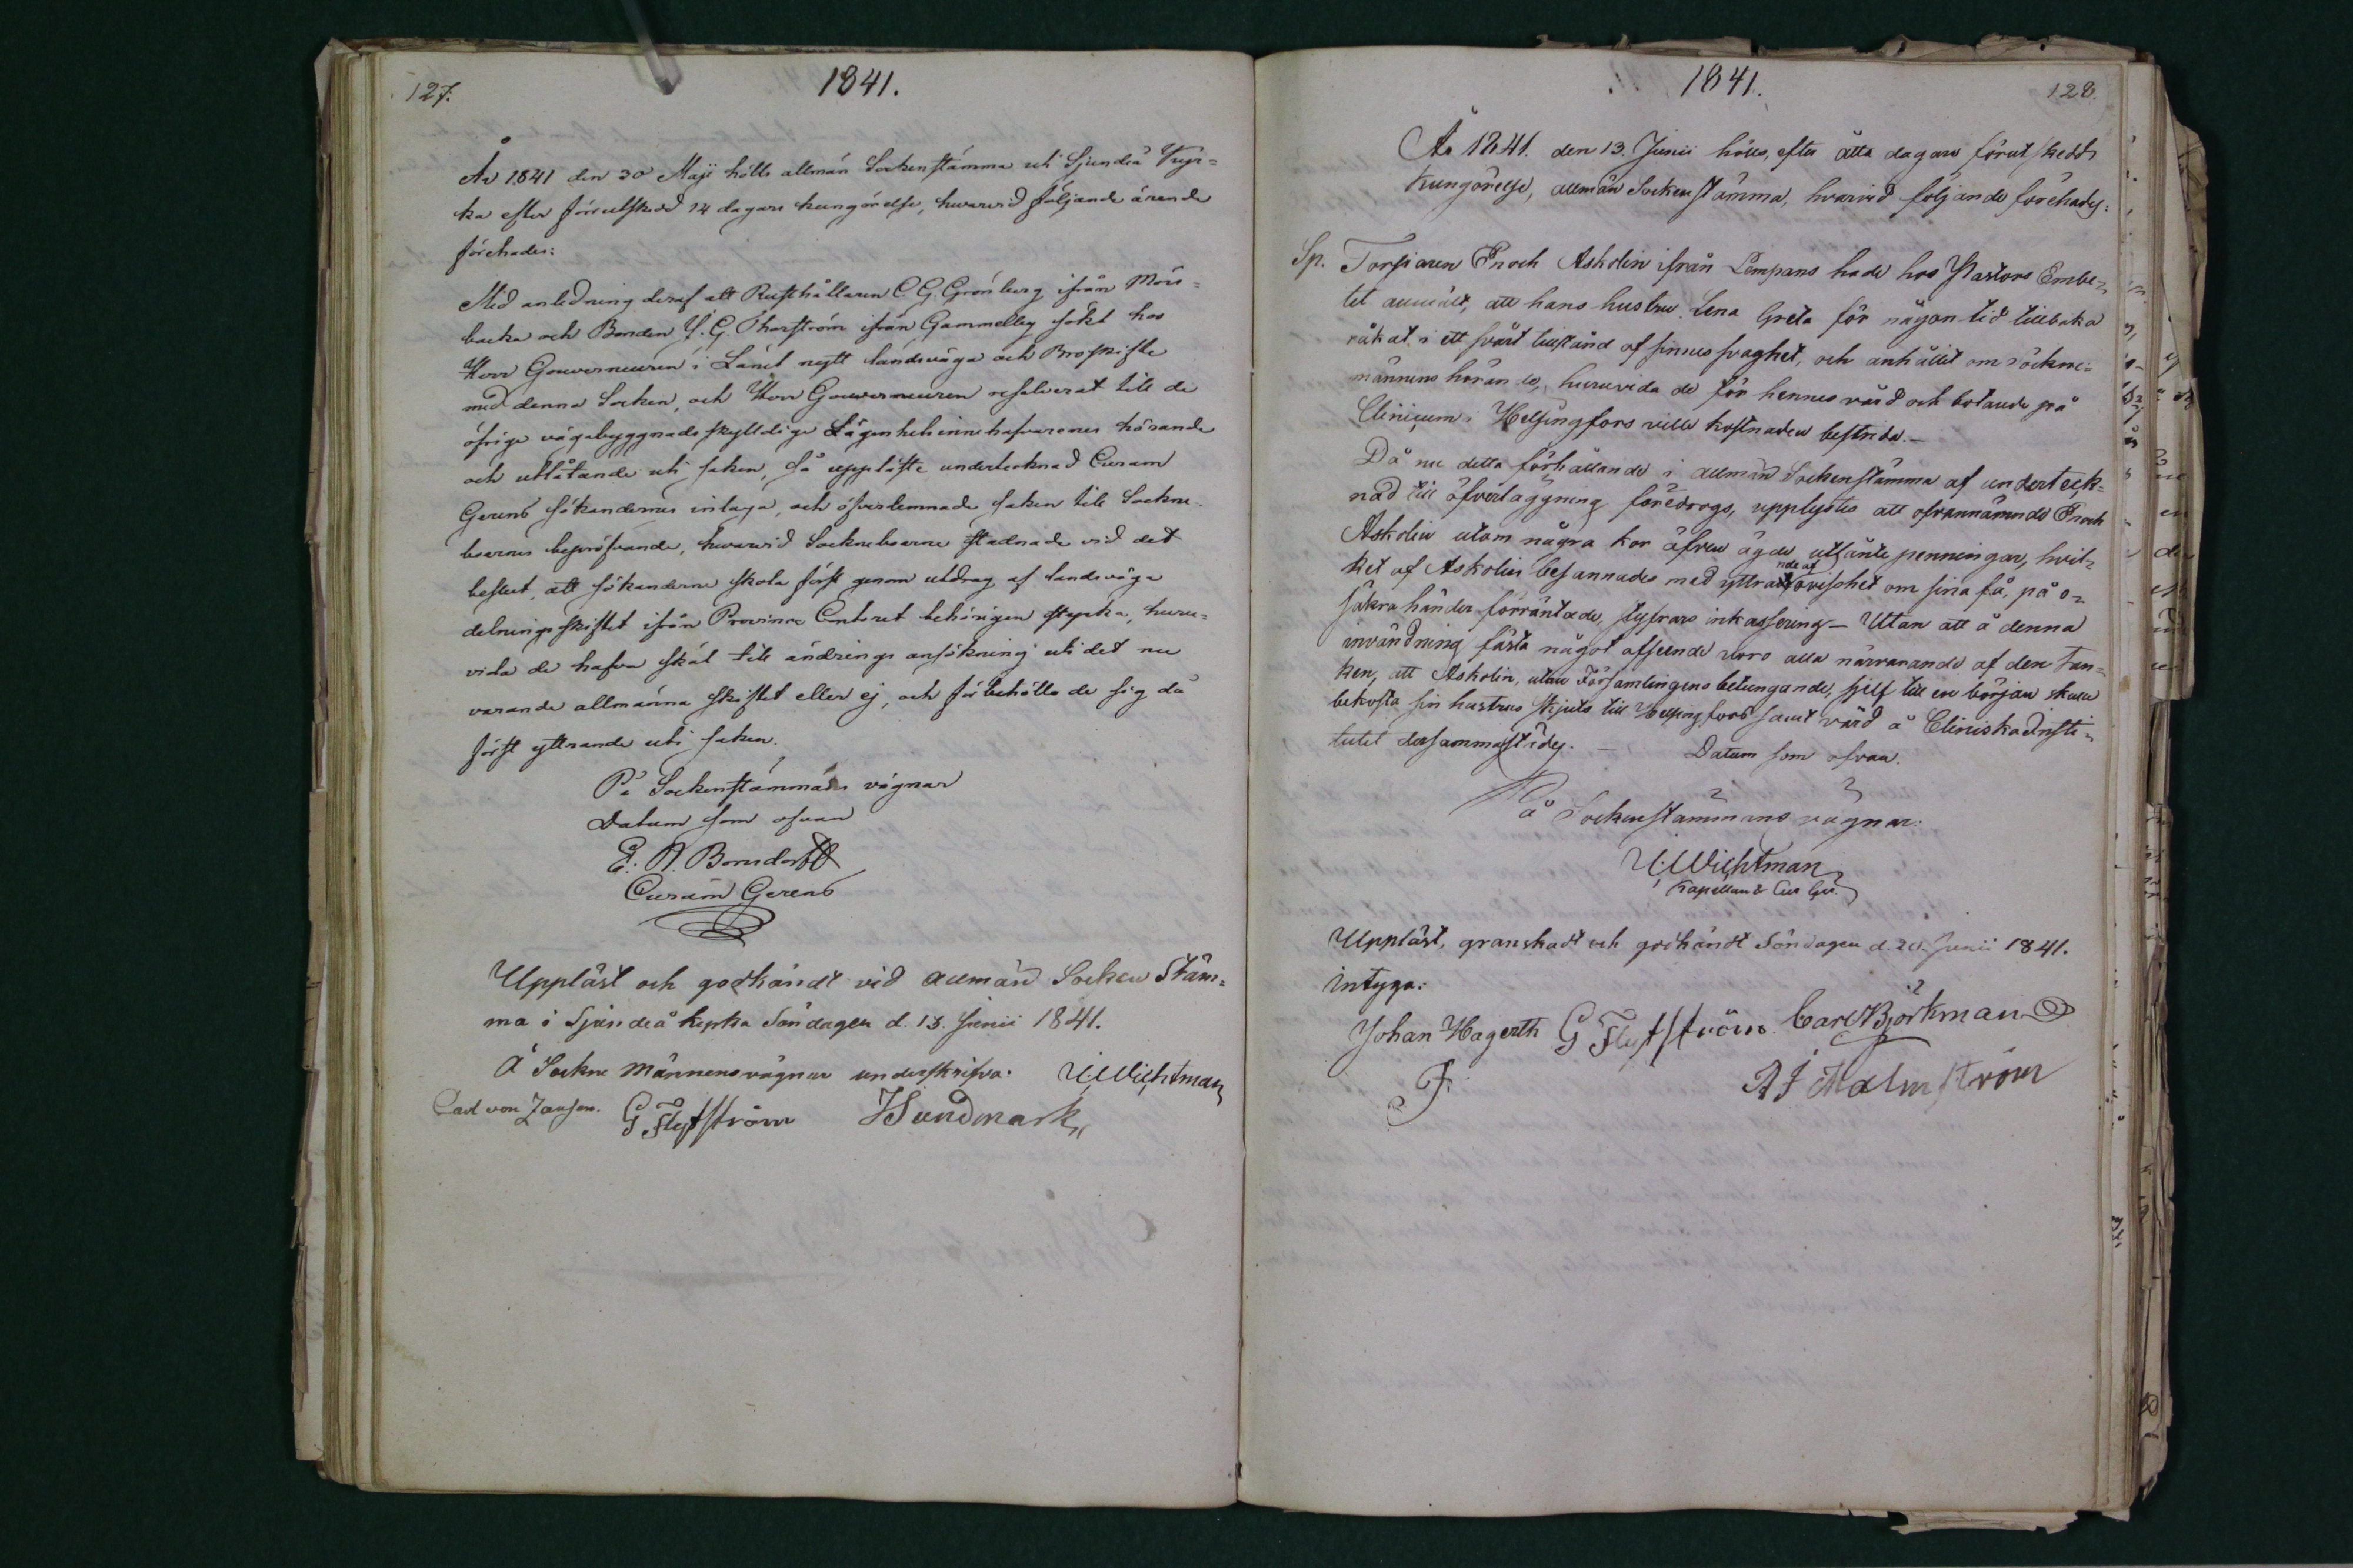 127.
1841.
År 1841 den 30 Maji hölls allmän Sockenstämma uti Sjundeå Kyr=
ka efter förutskedd 14 dagars kungörelse, hwarwid följande ärende
förehades:
Med anledning deraf att Rusthållaren C. G. Grönberg ifrån Mörs=
backa och Bonden G. Thorström ifrån Gammelby sökt hos
Herr Gouverneuren i Länet nytt landsväga och Broskifte
med denna Socken, och Herr Gouverneuren resolverat till de
öfrige vägabyggnadsskylldige Lägenhetsinnehafvarenes hörande
och utlåtande uti saken, så uppläste undertecknad Curam
Gerens sökandernes inlaga, och öfverlemnade saken till Sockne-
boernes bepröfvande, hwarwid Sockneboerne stadnade vid det
beslut, att sökanderne skola först genom utdrag af landsväga
delningsskiftet ifrån Province Contoret behörigen styrka, huru=
vida de hafva skäl till ändrings ansökning uti det nu
varande allmänna skiftet eller ej, och förbehöllo de sig då
först yttrande uti saken.
På Sockenstämmans vägnar
Datum som ofvan
E. N. Bonsdorff
Curam Gerens
Uppläst och godkändt vid allmän Socken Stäm=
ma i Sjundeå kyrka Söndagen d. 13. Junii 1841.
Å Sockne männens vägnar underskrifva: U. Wichtman
Carl von Jansen. G Flytström J Sundmark
1841.
128.
År 1841. den 13. Junii hölls, efter åtta dagars förut skedd
Kungörelse, allmän Sockenstämma, hvarvid följande förehades:
Sp. Torparen Enoch Askolin ifrån Lempans hade hos Pastors Embe=
tet anmält, att hans hustru Lena Greta för någon tid tillbaka
råkat i ett svårt tillstånd af sinnessvaghet, och anhållit om sockne=
männens hörande, huruvida de för hennes vård och botande på
Clinicum i Helsingfors ville kostnaden bestrida.—
Då nu detta förhållande i allmän Sockenstämma af underteck=
nad till öfverläggning föredrogs, upplystes att ofvannämnde Enoch
Askolin utom några kor äfven ägde utlånte penningar, hvil=
ket af Askolin besannades med yttrande af ovisshet om sina få, på o=
säkra händer förräntade, styfrars inkassering — Utan att å denna
invändning fästa något afseende voro alla närvarande af den tan=
ken, att Askolin, utan Församlingens betungande, sjelf till en början skulle
bekosta sin hustrus skjuts till Helsingfors samt vård å Cliniska Insti=
tutet dersammastädes. — Datum som ofvan.
På Sockenstämmans vägnar:
U. Wichtman
Kapellan & Cur Ger.
Uppläst, granskadt och godkändt Söndagen d. 20. Junii 1841.
intyga:
Johan Hagerth G Flytström. Carl Björkman
F.
A J Malmström